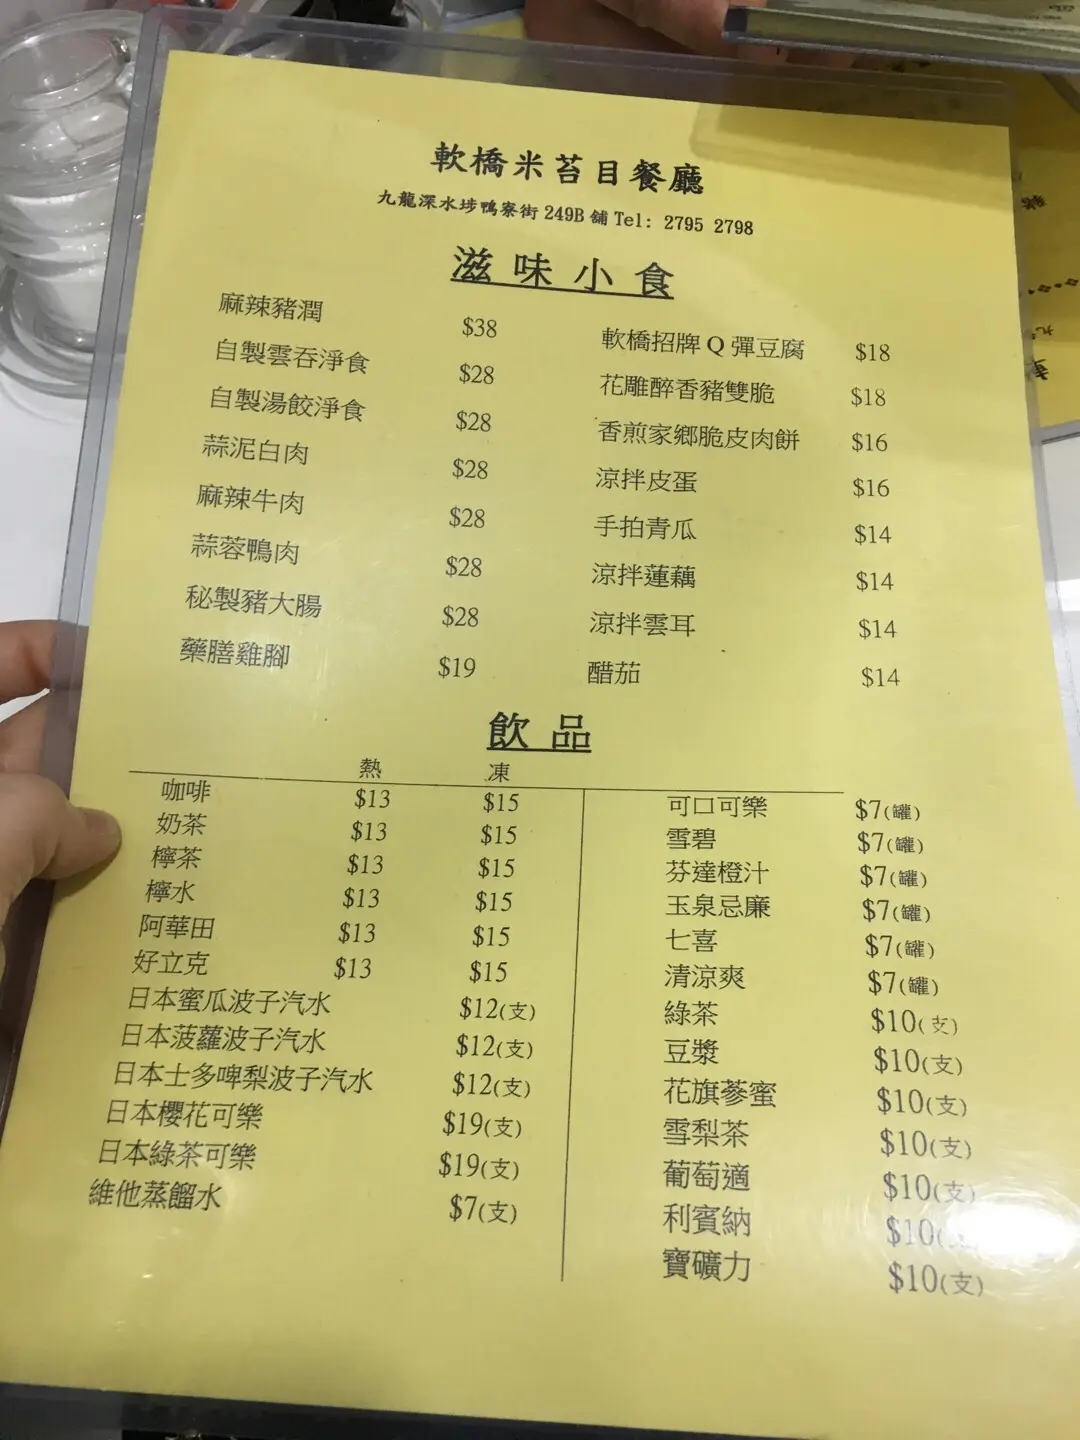 軟橋米苔目餐廳
九龍深水埗鴨寮街 249B 舖 Tel: 2795 2798
滋味小食
麻辣豬潤 $38
自製雲吞淨食 $28
自製湯餃淨食 $28
蒜泥白肉 $28
麻辣牛肉 $28
蒜蓉鴨肉 $28
秘製豬大腸 $28
藥膳雞腳 $19
軟橋招牌 Q 彈豆腐 $18
花雕醉香豬雙脆 $18
香煎家鄉脆皮肉餅 $16
涼拌皮蛋 $16
手拍青瓜 $14
涼拌蓮藕 $14
涼拌雲耳 $14
醋茄 $14
飲品
熱 凍
咖啡 $13 $15
奶茶 $13 $15
檸茶 $13 $15
檸水 $13 $15
阿華田 $13 $15
好立克 $13 $15
日本蜜瓜波子汽水 $12(支)
日本菠蘿波子汽水 $12(支)
日本士多啤梨波子汽水 $12(支)
日本櫻花可樂 $19(支)
日本綠茶可樂 $19(支)
維他蒸餾水 $7(支)
可口可樂 $7(罐)
雪碧 $7(罐)
芬達橙汁 $7(罐)
玉泉忌廉 $7(罐)
七喜 $7(罐)
清涼爽 $7(罐)
綠茶 $10(支)
豆漿 $10(支)
花旗蔘蜜 $10(支)
雪梨茶 $10(支)
葡萄適 $10(支)
利賓納 $10(
寶礦力 $10(支)